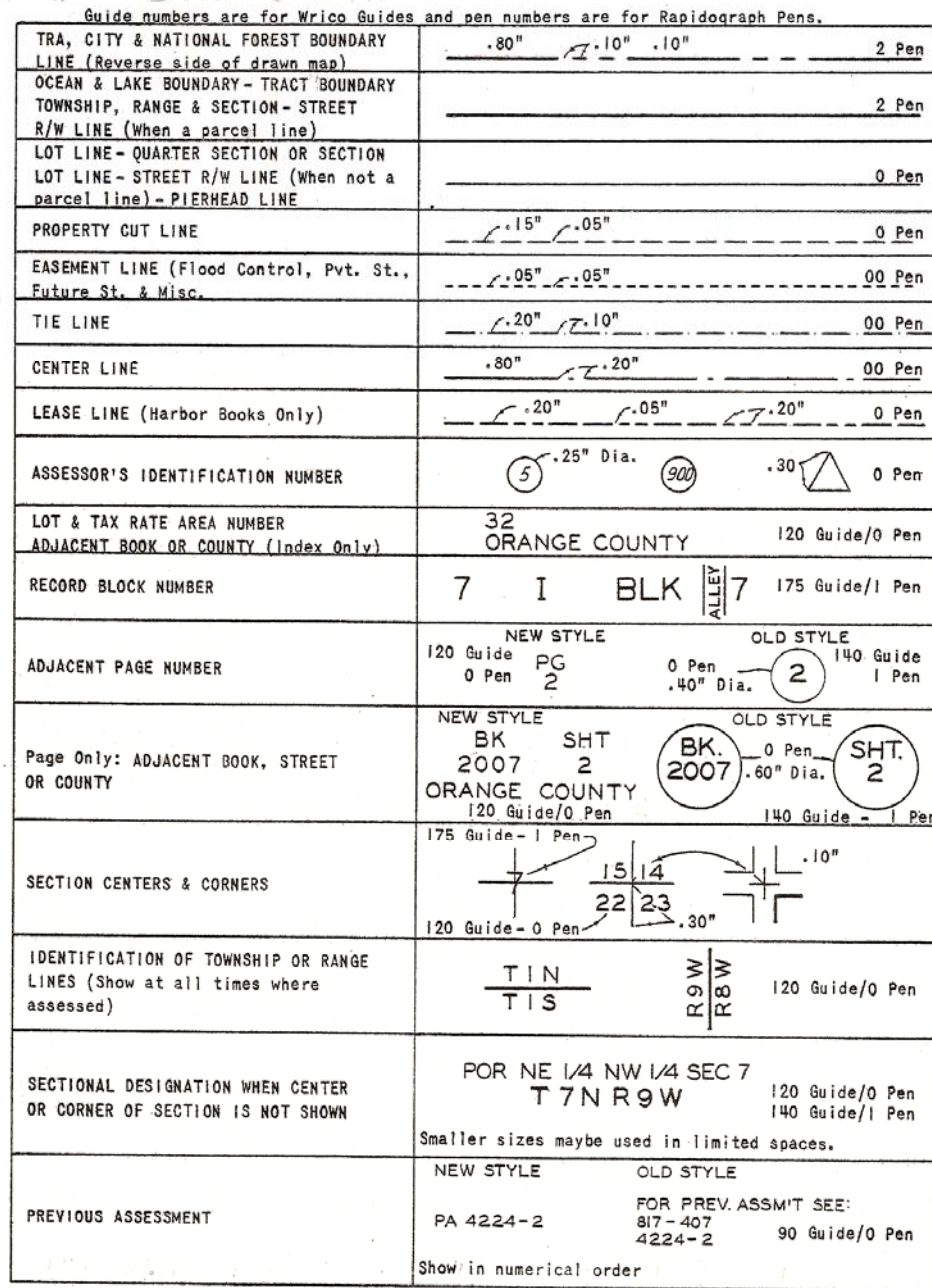 Guide numbers are for Wrico Guides and pen numbers are for Rapidograph Pens.
TRA, CITY & NATIONAL FOREST BOUNDARY
LINE (Reverse side of drawn map)
.80" .10" .10" 2 Pen
OCEAN & LAKE BOUNDARY- TRACT BOUNDARY
TOWNSHIP, RANGE & SECTION- STREET
R/W LINE (When a parcel line)
2 Pen
LOT LINE- QUARTER SECTION OR SECTION
LOT LINE- STREET R/W LINE (When not a
parcel line)- PIERHEAD LINE
0 Pen
PROPERTY CUT LINE
.15" .05" 0 Pen
EASEMENT LINE (Flood Control, Pvt. St.,
Future St. & Misc.
.05" .05" 00 Pen
TIE LINE
.20" .10" 00 Pen
CENTER LINE
.80" .20" 00 Pen
LEASE LINE (Harbor Books Only)
.20" .05" .20" 0 Pen
ASSESSOR'S IDENTIFICATION NUMBER
5 .25" Dia. 900 .30 0 Pen
LOT & TAX RATE AREA NUMBER
ADJACENT BOOK OR COUNTY (Index Only)
32
ORANGE COUNTY 120 Guide/0 Pen
RECORD BLOCK NUMBER
7 I BLK ALLEY 7 175 Guide/1 Pen
ADJACENT PAGE NUMBER
NEW STYLE
120 Guide
0 Pen
PG
2
OLD STYLE
0 Pen
.40" Dia.
2
140 Guide
1 Pen
Page Only: ADJACENT BOOK, STREET
OR COUNTY
NEW STYLE
BK SHT
2007 2
ORANGE COUNTY
120 Guide/0 Pen
OLD STYLE
BK.
2007
0 Pen
.60" Dia.
SHT.
2
140 Guide - 1 Pen
SECTION CENTERS & CORNERS
175 Guide- 1 Pen
7
15 14
22 23
.10"
.30"
120 Guide- 0 Pen
IDENTIFICATION OF TOWNSHIP OR RANGE
LINES (Show at all times where
assessed)
T1N
T1S
R9W
R8W
120 Guide/0 Pen
SECTIONAL DESIGNATION WHEN CENTER
OR CORNER OF SECTION IS NOT SHOWN
POR NE 1/4 NW 1/4 SEC 7
T 7N R9W
120 Guide/0 Pen
140 Guide/1 Pen
Smaller sizes maybe used in limited spaces.
PREVIOUS ASSESSMENT
NEW STYLE
PA 4224-2
OLD STYLE
FOR PREV. ASSM'T SEE:
817-407
4224-2
90 Guide/0 Pen
Show in numerical order